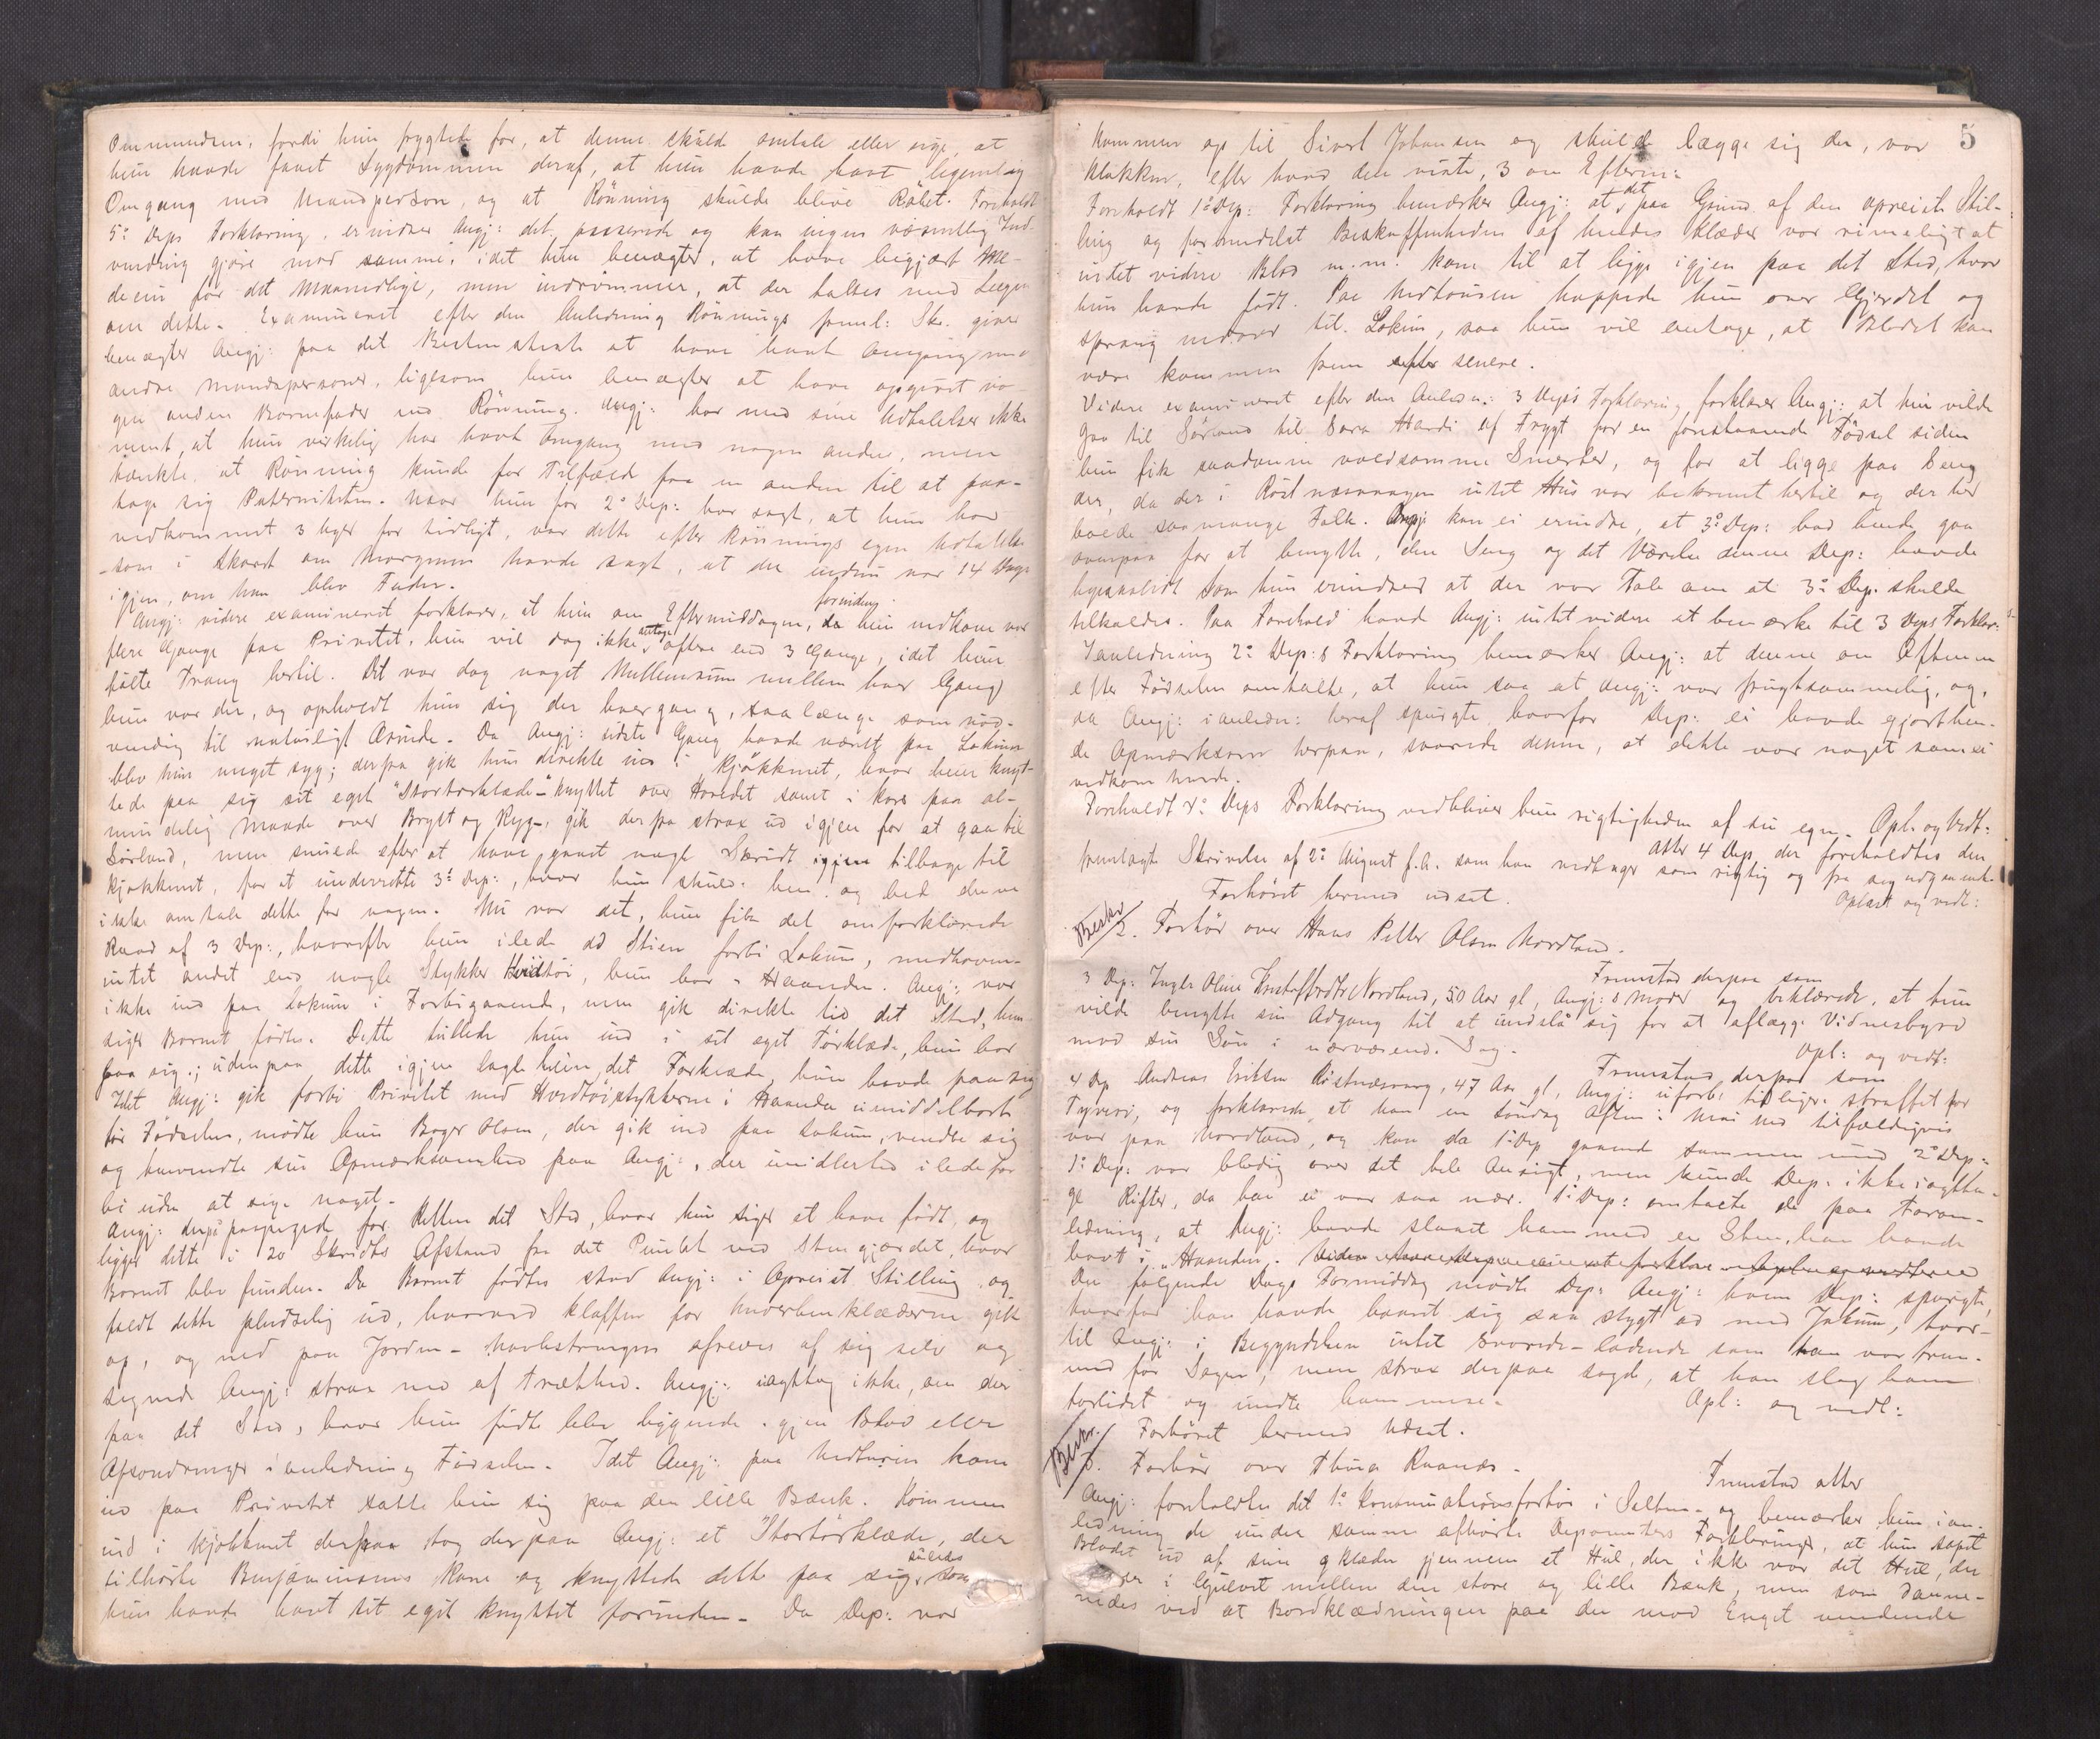 Ommundsen, fordi hun frygtede for, at denne skulde omtale eller sige, at
hun havde faaet Sygdommen deraf, at hun havde havt legemlig
Omgang med Mandsperson, og at Rönning skulde blive Rölet. Foreholdt
5te Deps Forklaring, erindrer Angj: det passerede og kan ingen væsentlig Ind-
vending gjöre mod samme, idet hun benægter, at have begjært Me-
decin for det Maanedlige, men indrömmer, at der taltes med Lægen
om dette. Examineret efter den Anledning Rönnings freml: Skr. giver
benægter Angj: paa det Bestemteste at have havt Omgang med
andre Mandspersoner, ligesom hun benægter at have opgivet no-
gen anden Barnefader end Rönning. Angj: har med sine Udtalelser ikke
ment, at hun virkelig har havt Omgang med nogen anden, men
tænkte at Rönning kunde for Tilfældet faa en anden til at paa-
tage sig Paterniteten. Naar hun for 2den Dep: har sagt, at hun har
nedkommet 3 Uger for tidligt, var dette efter Rönnings egen Udtalelse
som i Skaret om Morgenen havde sagt, at der endnu var 14 Dage
igjen, om han blev Fader.
Angj: videre examineret forklarer, at hun om Eftermiddagen, da hun nedkom var
forinden
flere Gange paa Privetet, hun vil dog ikke antage oftere end 3 Gange, idet hun
fölte Trang hertil. Det var dog noget Mellemrum mellem hver Gang
hun var der, og opholdt hun sig der hvergang, saalænge som nöd-
vendig til naturligt Ærinde. Da Angj: sidste Gang havde været paa Lokum
blev hun meget syg; derfra gik hun direkte ind i Kjökkenet, hvor hun knyt-
tede paa sig sit eget "Stortörklæde" knyttet over Hovedet samt i Kors paa al-
mindelig Maade over Bryst og Ryg, gik derfra strax ud igjen for at gaa til
Sörland, men snuede efter at have gaaet nogle Skridt igjen tilbage til
Kjökkenet, for at underrette 3die Dep:, hvor hun skulde hen og bad denne
ikke omtale dette for nogen. Nu var det, hun fik det omforklarede
Raad af 3 Dep:, hvorefter hun ilede ad Stien forbi Lokum, medhaven-
intet andet end nogle Stykker Hvidtöi, hun bar i Haanden. Angj: var
ikke ind paa Lokum i Forbigaaende, men gik direkte til det Sted, hun
siger Barnet födtes. Dette tullede hun ind i sit eget Törklæde, hun bar
paa sig; udenpaa dette igjen lagte hun det Forklæde, hun havde paa sig
Idet Angj: gik forbi Privetet med Hvidtöistykkerne i Haanden umiddelbart
för Födselen, mödte hun Roger Olsen, der gik ind paa Lokum, vendte sig
og henvendte sin Opmærksomhed paa Angj:, der imidlertid ilede for
bi uden at sige noget.
Angj: derpaa paapeged for Retten det Sted, hvor hun siger at have födt, og
ligger dette i 20 Skridts Afstand fra det Punkt ved Stengjærdet, hvor
Barnet blev funden. Da Barnet födtes stod Angj: i opreist Stilling og
faldt dette pludselig ud, hvorved Klaffen for Underbenklæderne gik
op, og ned paa Jorden. Navlestrengen afreves af sig selv og
segnede Angj: strax ned af Træthed. Angj: iagttog ikke, om der
paa det Sted, hvor hun födte blev liggende igjen Blod eller
Afsondringer i anledning Födselen. Idet Angj: paa Nedturen kom
ind paa Privetet satte hun sig paa den lille Bænk. Kommen
ind i Kjökkenet derfra tog derpaa Angj: et "Stortörklæde, der
tilhörte Benjaminsens Kone og knyttede dette paa sig saaledes som
hun havde havt sit eget knyttet forinden. Da Dep: var
5
kommen op til Sivert Johansen og skulde lægge sig der, var
Klokken, efter hvad den viste, 3 om Efterm:
Foreholdt 1ste Dep: Forklaring bemærker Angj: at det paa Grund af den opreiste Stil-
ling og formedelst Beskaffenheden af hendes Klæder var rimeligt at
intet videre Blod m.m. kom til at ligge igjen paa det Sted, hvor
hun havde födt. Paa Nedturen hoppede hun over Gjærdet og
sprang nedover til Lokum, saa hun vil antage, at Blodet kan
være kommen frem efter senere.
Videre examineret efter den Anledn: 3 Deps Forklaring forklarer Angj: at hun vilde
gaa til Sörland til Sara Hardi af Frygt for en forestaaende Födsel siden
hun fik saadanne voldsomme Smerter, og for at ligge paa Seng
der, da der i Röstnæsvaagen intet Hus var bekvemt hertil og der her
boede saa mange Folk. Angj: kan ei erindre, at 3die Dep: bad hende gaa
ovenpaa for at benytte, den Seng og det Værelse denne Dep: havde
beskaaldt som hun erindred at der var Tale om at 3die Dep. skulde
tilkaldes. Paa Forehold havd Angj: intet videre at bemærke til 3 Deps Forklar:
I anledning 2den Dep:s Forklaring bemærker Angj: at denne om Aftenen
efter Födselen omtalte, at hun saa at Angj: var frugtsommelig, og,
da Angj: i anledn: heraf spurgte hvorfor Dep: ei havde gjort hen-
de Opmærksom herpaa, svarede denne, at dette var noget som ei
vedkom hende.
Foreholdt 4de Deps Forklaring vedbliver hun rigtigheden af sin egen. Opl. og vedt:
Atter 4 Dep. der foreholdtes den
fremlagte Skrivelse af 2den August f.A. som han vedtager som rigtig og fra sig udgaaende.
Oplæst og vedt:
Forhöret hermed udsat.
Beskr
2. Forhör over Hans Petter Olsen Nordland.
Fremstod derpaa som
3 Dep: Inger Oline Kristoffersdtr Nordland, 50 Aar gl, Angj:s Moder og beklærede, at hun
vilde benytte sin Adgang til at undslå sig for at aflægge Vidnesbyrd
mod sin Sön i nærværende Sag.
Opl: og vedt:
Fremstod derpaa som
4 Dep Andreas Eriksen Röstnæsvaag, 47 Aar gl, Angj: uforb, tidligere straffet for
Tyveri, og forklarede, at han en Söndag Aften i Mai md tilfældigvis
var paa Nordland, og kom da 1ste Dep gaaende sammen med 2den Dep:
1ste Dep: var blodig over det hele Ansigt, men kunde Dep: ikke iagtta-
ge Rifter, da han ei var saa nær. 1ste Dep: omtalte da paa Foran-
ledning, at Angj: havde slaaet ham med en Sten, han havde
havt i Haanden.
Den fölgende Dags Formiddag mödte Dep: Angj: hvem Dep: spurgte,
hvorfor han havde baaret sig saa stygt ad med Jakum, hvor-
til Angj: i Begyndelsen intet svarede - ladende som han var frem-
med for Sagen, men strax derpaa sagde, at han slog ham
forlidet og undte ham mere.
Opl: og vedt:
Forhöret hermed udsat.
Beskr.
3. Forhör over Thina Raanæs.
Fremstod atter
Angj: foreholdtes det 1ste Kontinuationsforhör i Salten og bemærker hun i an-
ledning de under samme afhörte Deponenters Forklaringer, at hun söpet
Blodet ud af sine Klæder gjennem et Hul, der ikke var det Hul, der
er i Gulvet mellem den store og lille Bænk, men som danne-
redes ved at Bordklædningen paa den mod Enget vendende